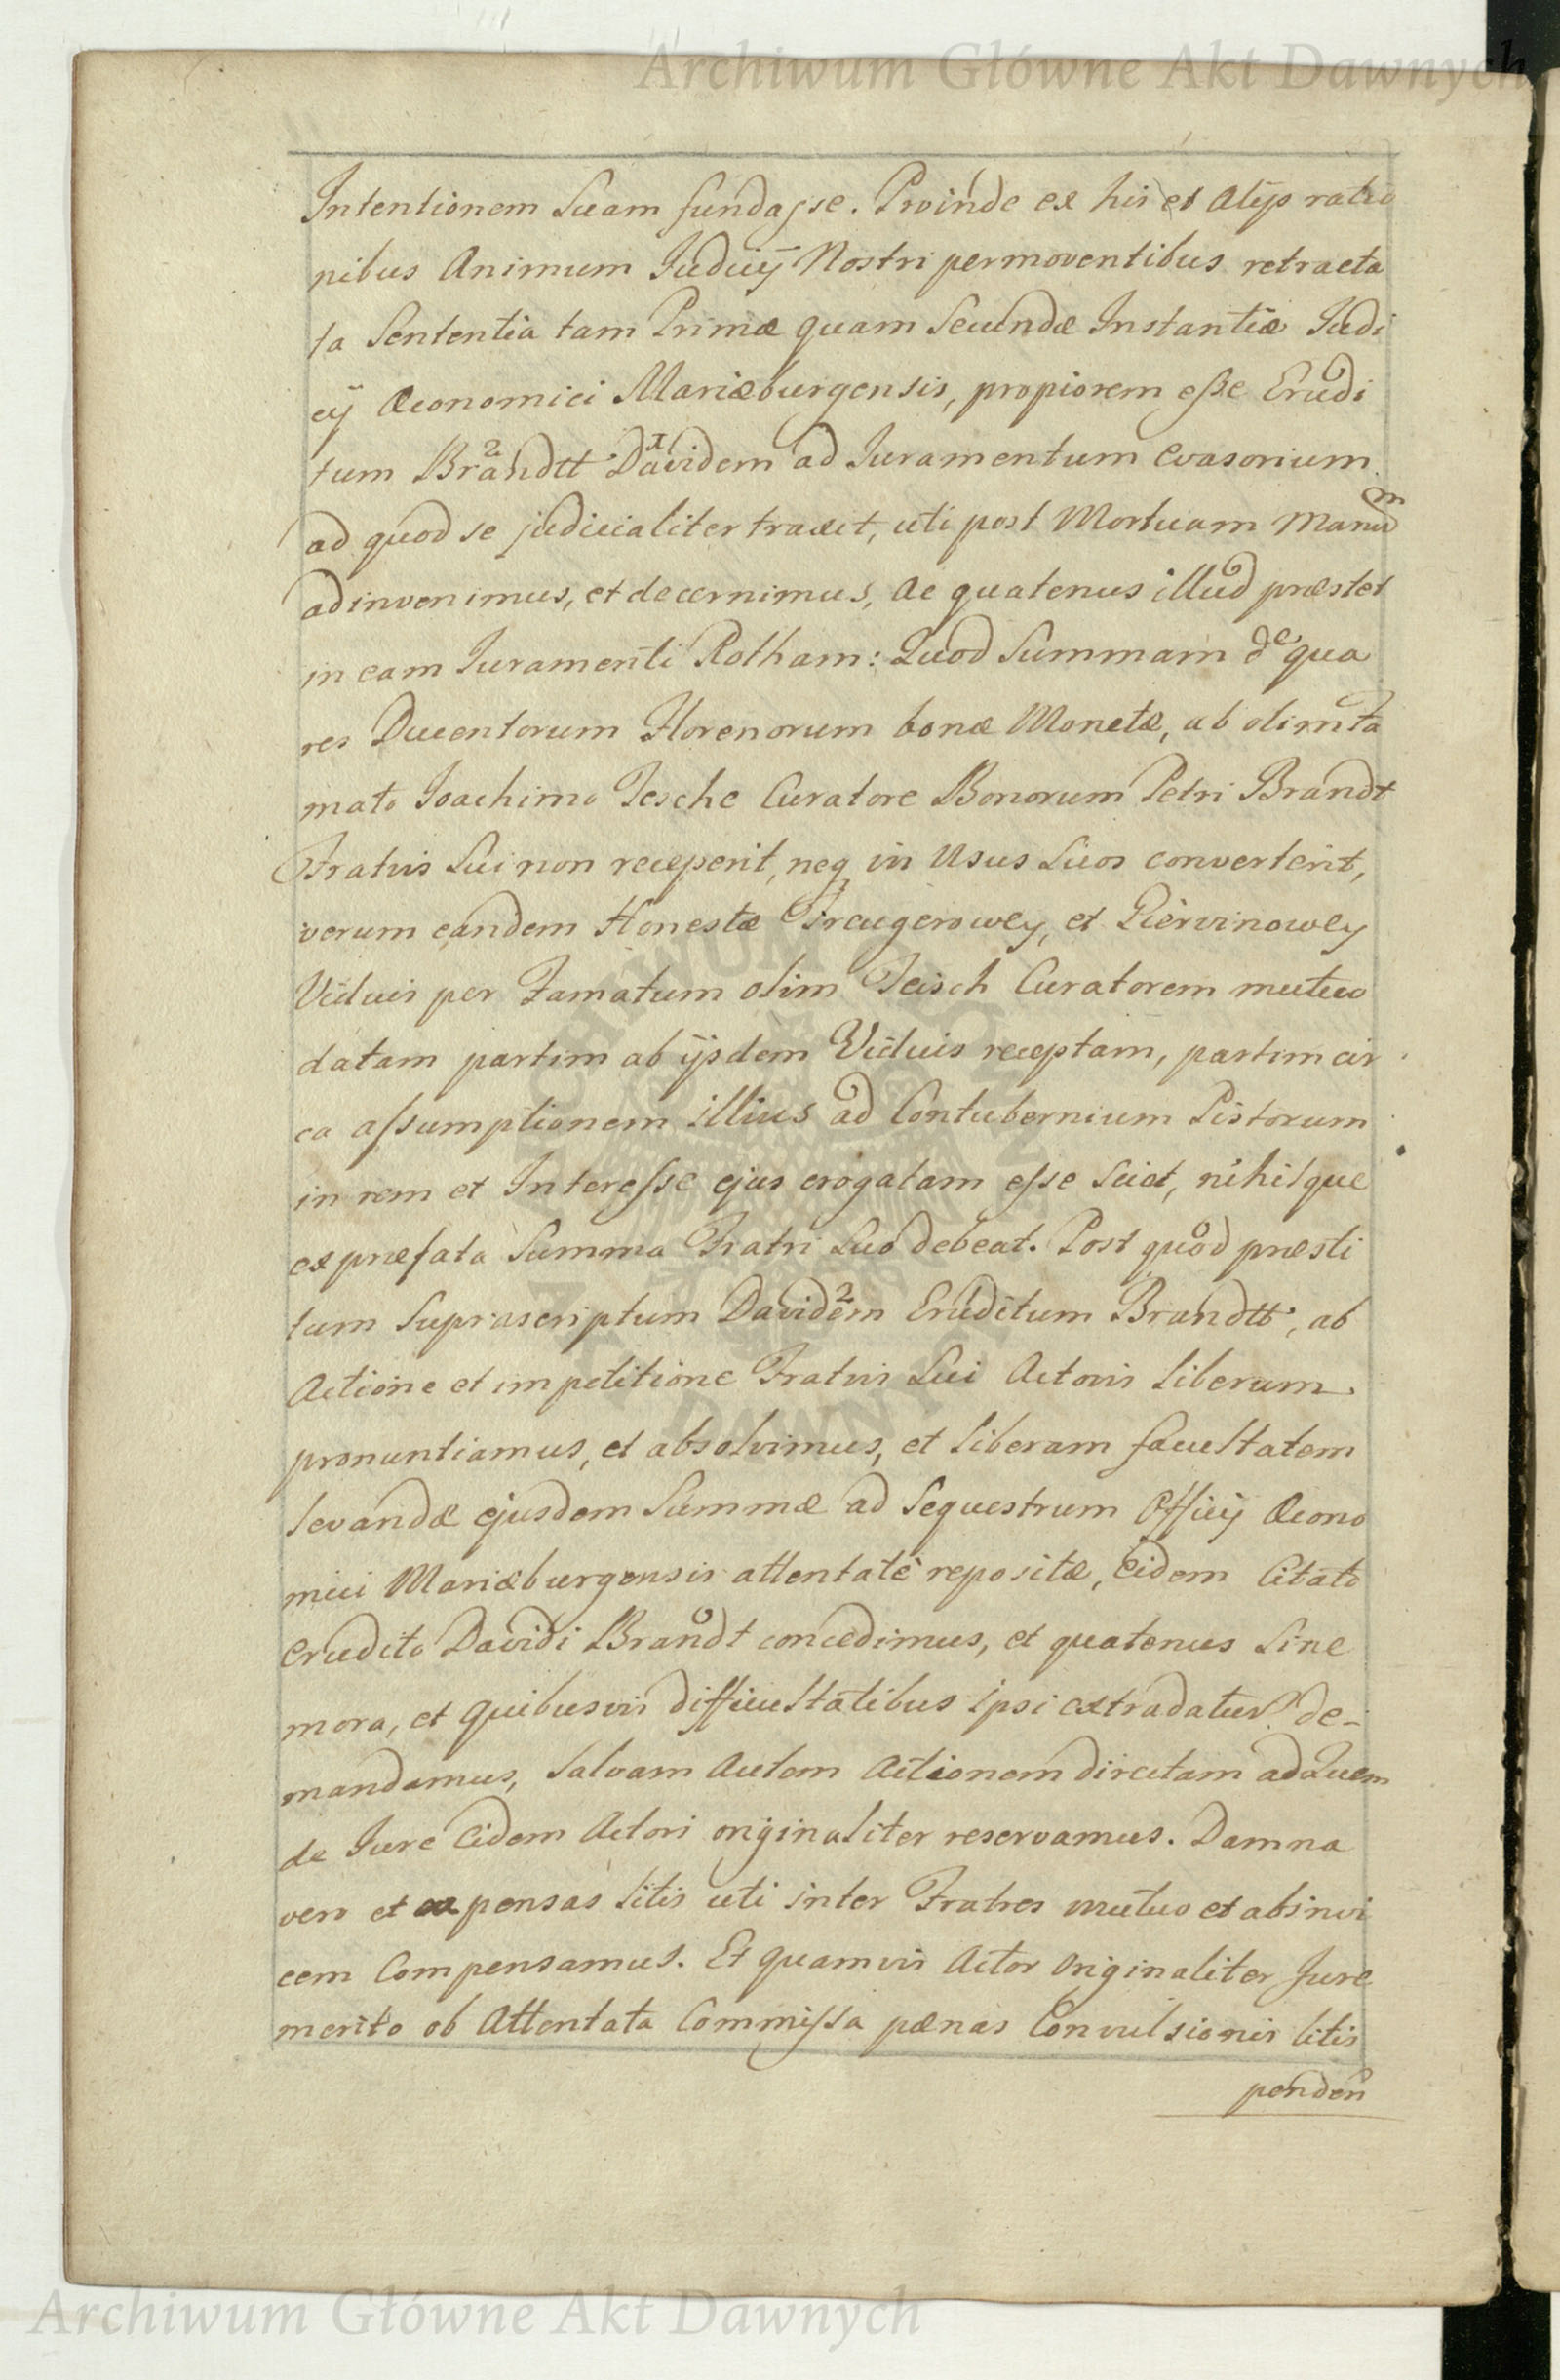 Archiwum Główne Akt Dawnych
Intentionem Suam fundasse. Proinde ex his et Alijs ratio
nibus Animum Iudicij Nostri permoventibus retracta
ta Sententia tam Primæ quam Secundæ Instantiæ Iudi
cij Œconomici Mariæburgensis, propiorem esse Erudi
tum Brandtt Davidem ad Iuramentum Evasorium
ad quod se judicialiter traxit, uti post Mortuam Manum
adinvenimus, et decernimus, Ac quatenus illud præstet
in eam Iuramenti Rotham: Quod Summam de qua
res Ducentorum Florenorum bonæ Monetæ, ab olim fa
mato Ioachimo Jesche Curatore Bonorum Petri Brandt
Fratris Sui non receperit, neq in Usus Suos converterit,
verum eandem Honestæ Freugerowey, et Pierwinowey
Viduis per Famatum olim Jeisch Curatorem mutuo
datam partim ab ijsdem Viduis receptam, partim cir
ca assumptionem illius ad Contubernium Pistorum
in rem et Interesse ejus erogatam esse sciat, nihilque
ex præfata Summa Fratri Suo debeat. Post quod præsti
tum Suprascriptum Davidem Eruditum Brandtt, ab
Actione et impetitione Fratris Sui Actoris liberum
pronuntiamus, et absolvimus, et liberam facultatem
levandæ ejusdem Summæ ad Sequestrum Officij Œcono
mici Mariæburgensis attentatè repositæ, Eidem Citato
Erudito Davidi Brandt concedimus, et quatenus Sine
mora, et quibusvis difficultatibus ipsi extradatur de-
mandamus, Salvam Autem Actionem directam ad Quem
de Iure Eidem Actori originaliter reservamus. Damna
vero et expensas litis uti inter Fratres mutuo et abinvi
cem Compensamus. Et quamvis Actor Originaliter Jure
merito ob Attentata Commissa pænas Convulsionis litis
penden
Archiwum Główne Akt Dawnych